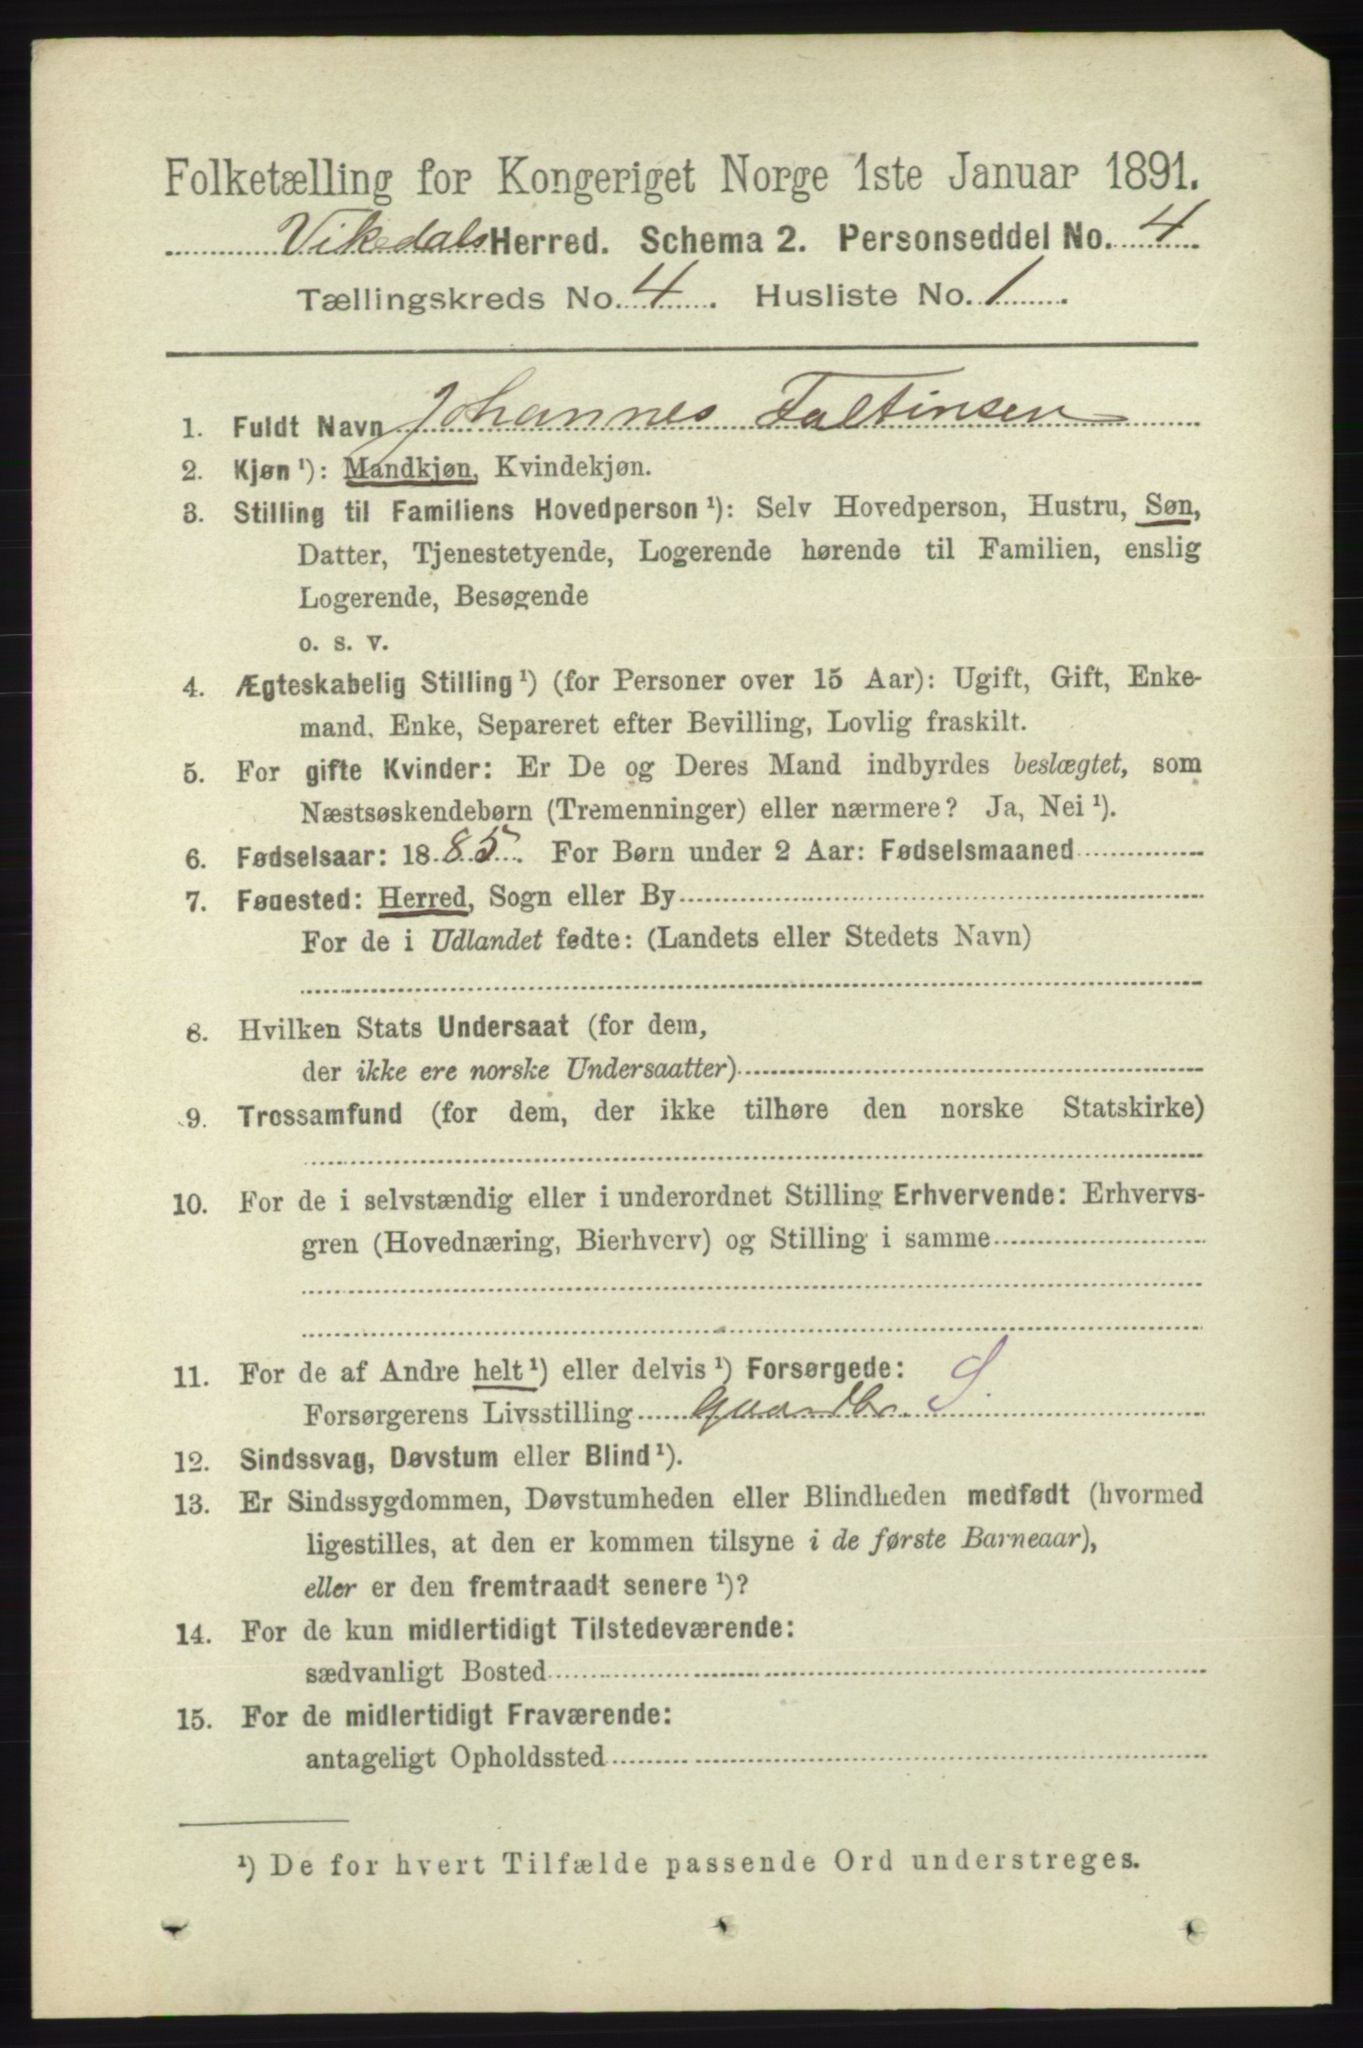 Folketælling for Kongeriget Norge 1ste Januar 1891.
Vikedals Herred. Schema 2. Personseddel No. 4
Tællingskreds No. 4. Husliste No. 1.
1. Fuldt Navn Johannes Faltinsen
2. Kjøn ¹): Mandkjøn, Kvindekjøn.
3. Stilling til Familiens Hovedperson ¹): Selv Hovedperson, Hustru, Søn,
Datter, Tjenestetyende, Logerende hørende til Familien, enslig
Logerende, Besøgende
o. s. v.
4. Ægteskabelig Stilling ¹) (for Personer over 15 Aar): Ugift, Gift, Enke-
mand, Enke, Separeret efter Bevilling, Lovlig fraskilt.
5. For gifte Kvinder: Er De og Deres Mand indbyrdes beslægtet, som
Næstsøskendebørn (Tremenninger) eller nærmere? Ja, Nei ¹).
6. Fødselsaar: 1885. For Børn under 2 Aar: Fødselsmaaned
7. Fødested: Herred, Sogn eller By
For de i Udlandet fødte: (Landets eller Stedets Navn)
8. Hvilken Stats Undersaat (for dem,
der ikke ere norske Undersaatter)
9. Trossamfund (for dem, der ikke tilhøre den norske Statskirke)
10. For de i selvstændig eller i underordnet Stilling Erhvervende: Erhvervs-
gren (Hovednæring, Bierhverv) og Stilling i samme
11. For de af Andre helt ¹) eller delvis ¹) Forsørgede:
Forsørgerens Livsstilling Gaardbr. S.
12. Sindssvag, Døvstum eller Blind ¹).
13. Er Sindssygdommen, Døvstumheden eller Blindheden medfødt (hvormed
ligestilles, at den er kommen tilsyne i de første Barneaar),
eller er den fremtraadt senere ¹)?
14. For de kun midlertidigt Tilstedeværende:
sædvanligt Bosted
15. For de midlertidigt Fraværende:
antageligt Opholdssted
¹) De for hvert Tilfælde passende Ord understreges.